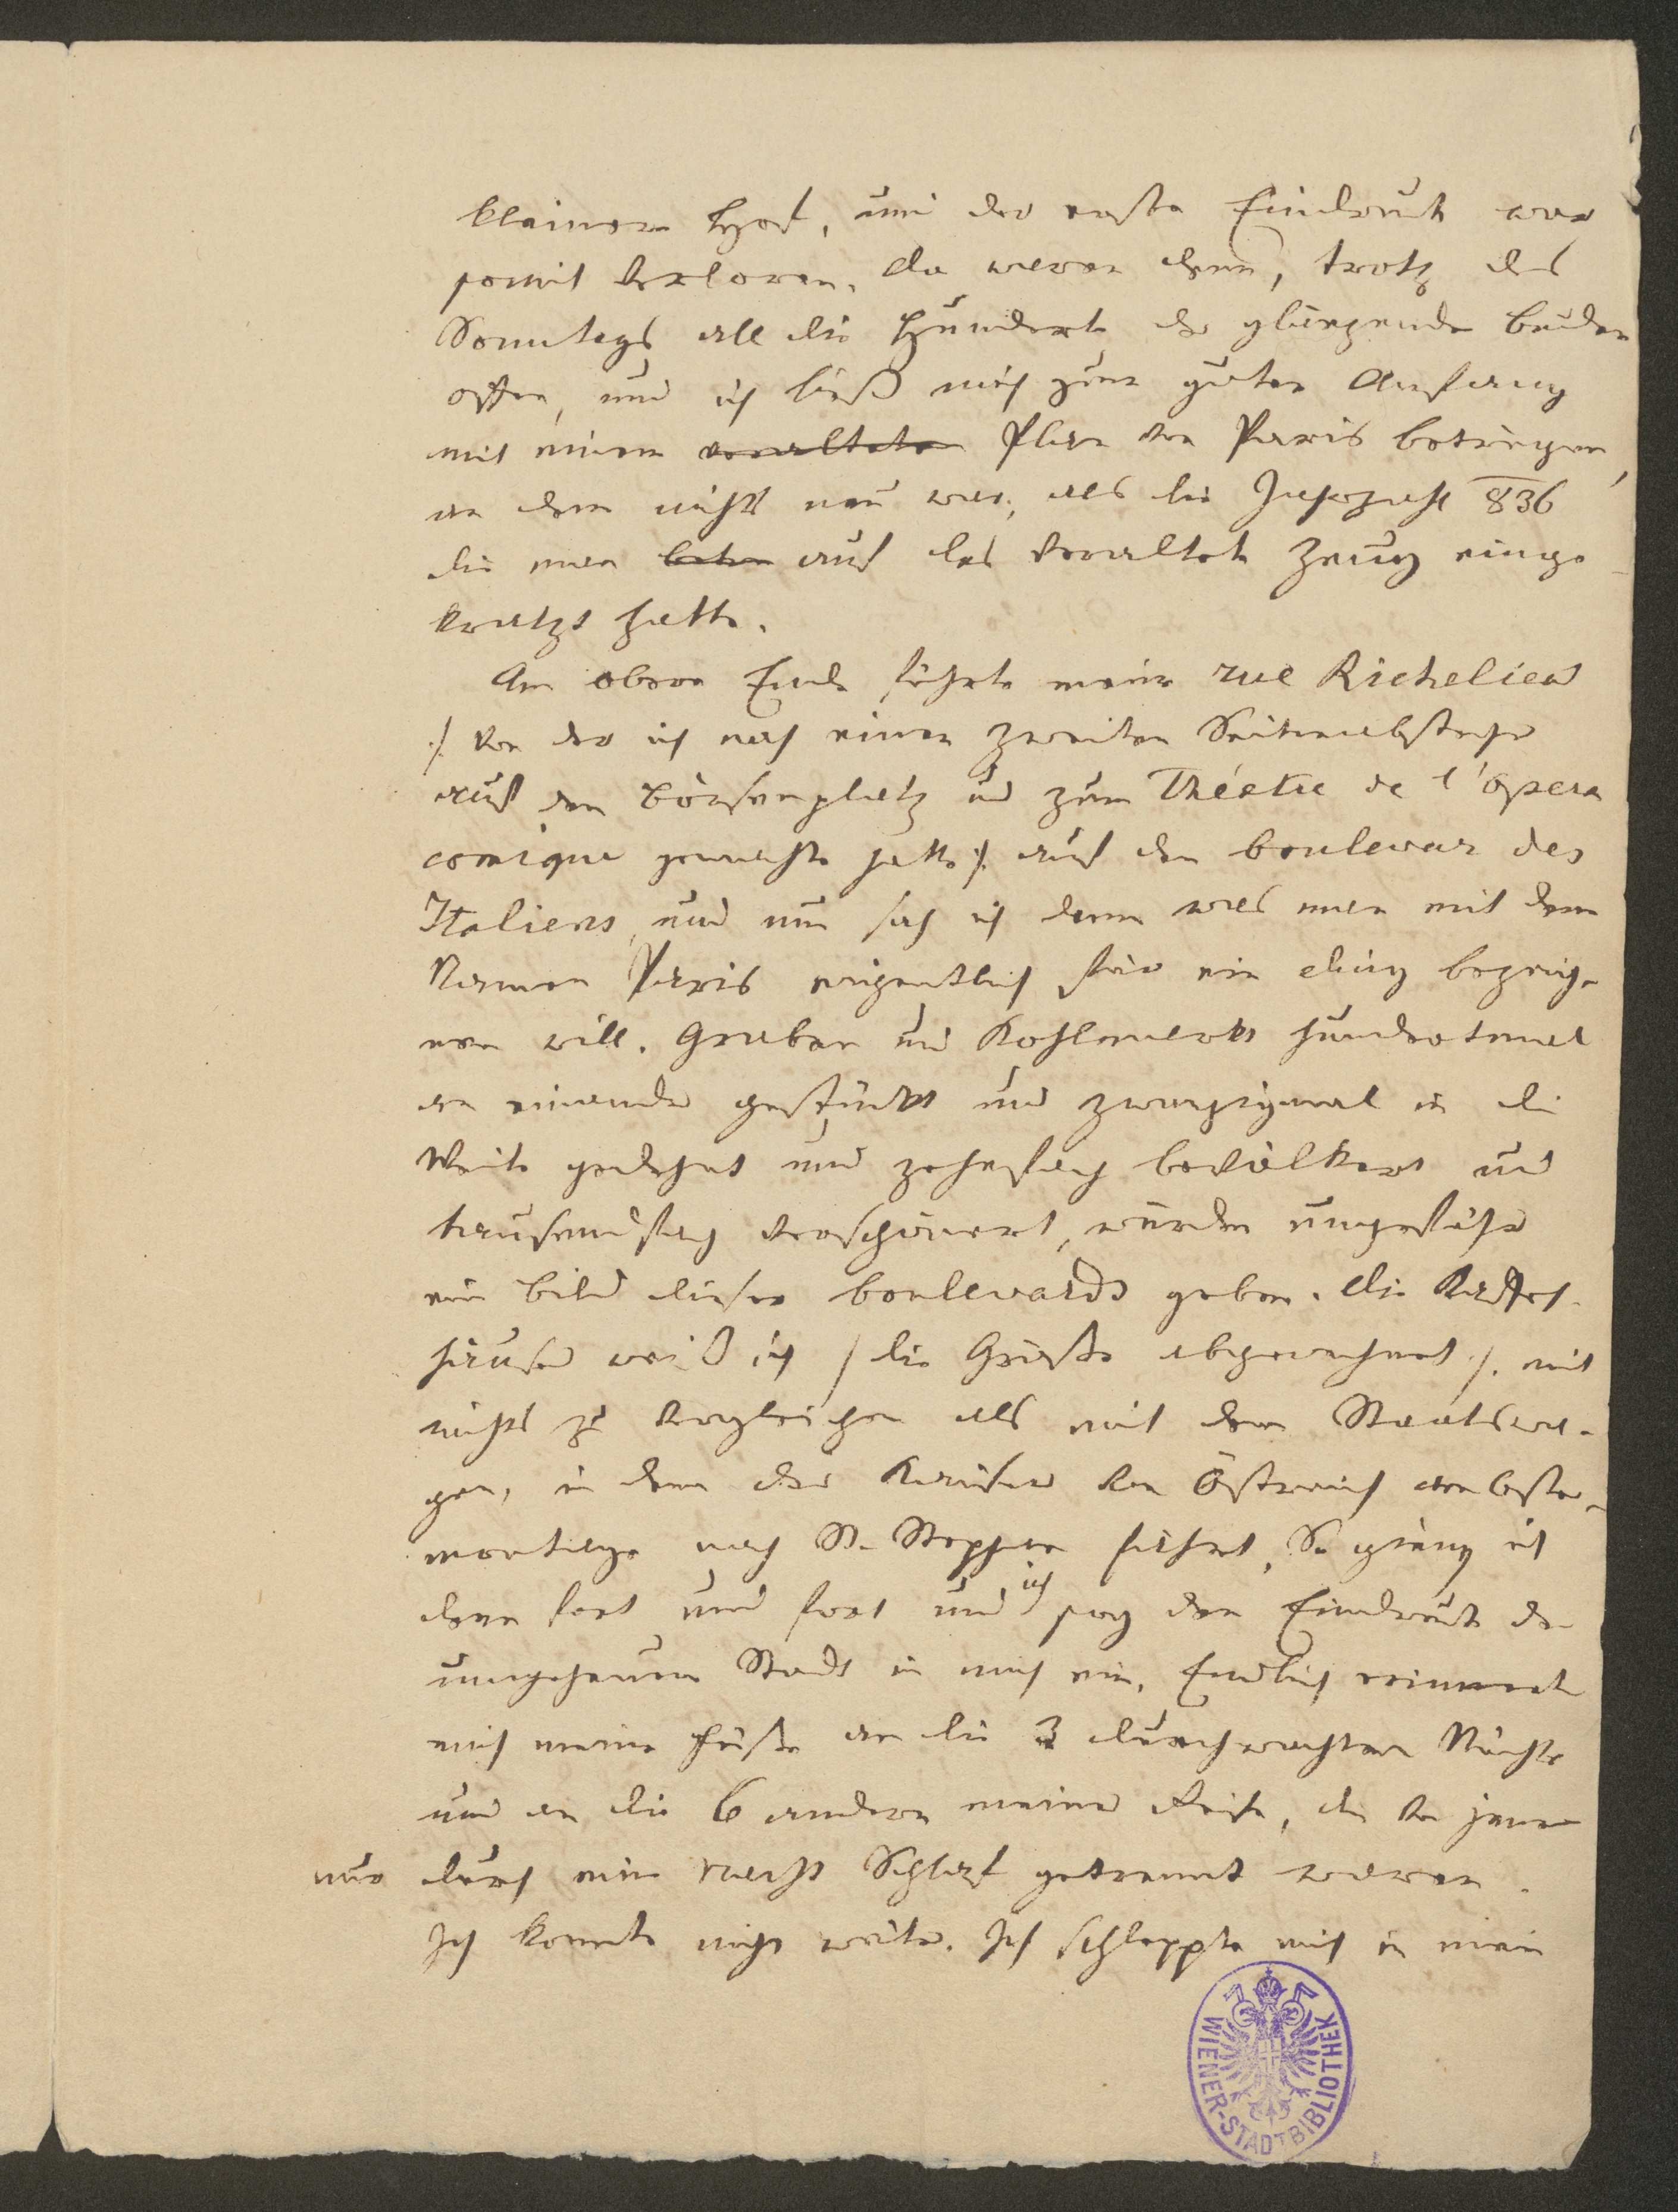 kleiner Hof, und der erste Eindruck war
somit verloren. Da waren denn, trotz des
Sonntags all die Hunderte der glänzenden Buden
offen, und ich ließ mich zum guten Anfang
mit einem veralteten Plan von Paris betrügen,
an dem nichts neu war, als die Jahrzahl 836
die man auf das veraltete Zeug einge-
kratzt hatte.
Am obern Ende führte meine rue Richelieu
/: von der ich nach einen zweiten Seitenabstecher
auf den Börsenplatz und zum Théatre de l'opera
comique gemacht hatte :/ auf den boulevar des
Italiens, und nun sah ich denn was man mit dem
Namen Paris eigentlich für ein Ding bezeich-
nen will. Graben und Kohlmarkt hundertmal
an einander gestückt und zwanzigmal in die
Weite gedehnt und zehnfach bevölkert und
tausendfach verschönert, würden ungefähr
ein Bild dieser boulevards geben. Die Kaffeh-
häuser weiß ich /: die Größe abgerechnet :/ mit
nichts zu vergleichen als mit dem Staatswa-
gen, in dem der Kaiser von Östreich am Oster-
montage nach St. Stephan fährt. So gieng ich
denn fort und fort und ich sog den Eindruck der
ungeheuern Stadt in mich ein. Endlich erinnerten
mich meine Füße an die 3 durchwachten Nächte
und an die 6 andern meiner Reise, die von jenen
nur durch eine Nacht Schlaf getrennt waren.
Ich konnte nicht weiter. Ich schleppte mich in mein
WIENER-STADTBIBLIOTHEK